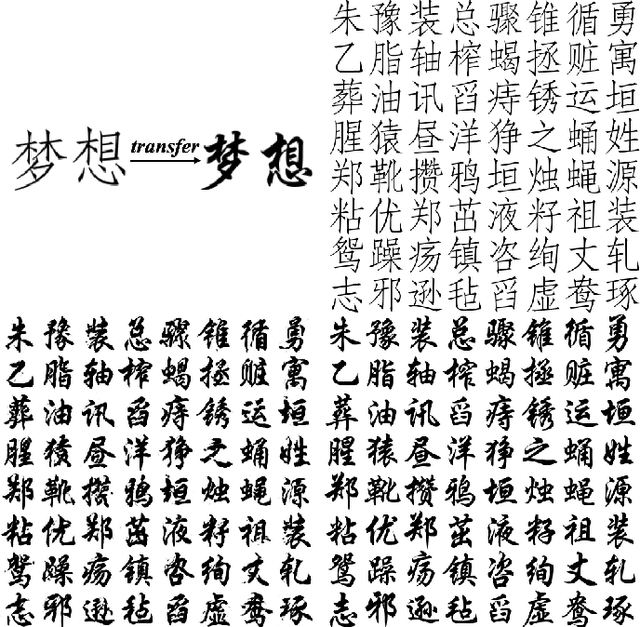 梦想 transfer 梦想
朱豫装总骤锥循勇
乙脂轴榨蝎拯赃寓
葬油讯舀痔锈运垣
腥猿昼洋狰之蛹姓
郑靴攒鸦垣烛蝇源
粘优郑茁液籽祖装
鸳躁疡镇咨绚丈轧
志邪逊毡舀虚鸯琢
朱豫装总骤锥循勇
乙脂轴榨蝎拯赃寓
葬油讯舀痔锈运垣
腥猿昼洋狰之蛹姓
郑靴攒鸦垣烛蝇源
粘优郑茁液籽祖装
鸳躁疡镇咨绚丈轧
志邪逊毡舀虚鸯琢
朱豫装总骤锥循勇
乙脂轴榨蝎拯赃寓
葬油讯舀痔锈运垣
腥猿昼洋狰之蛹姓
郑靴攒鸦垣烛蝇源
粘优郑茁液籽祖装
鸳躁疡镇咨绚丈轧
志邪逊毡舀虚鸯琢